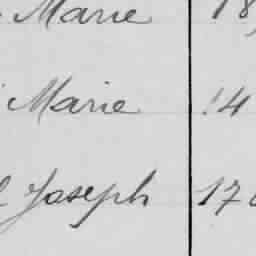 Marie 18
Marie 14
Joseph 17